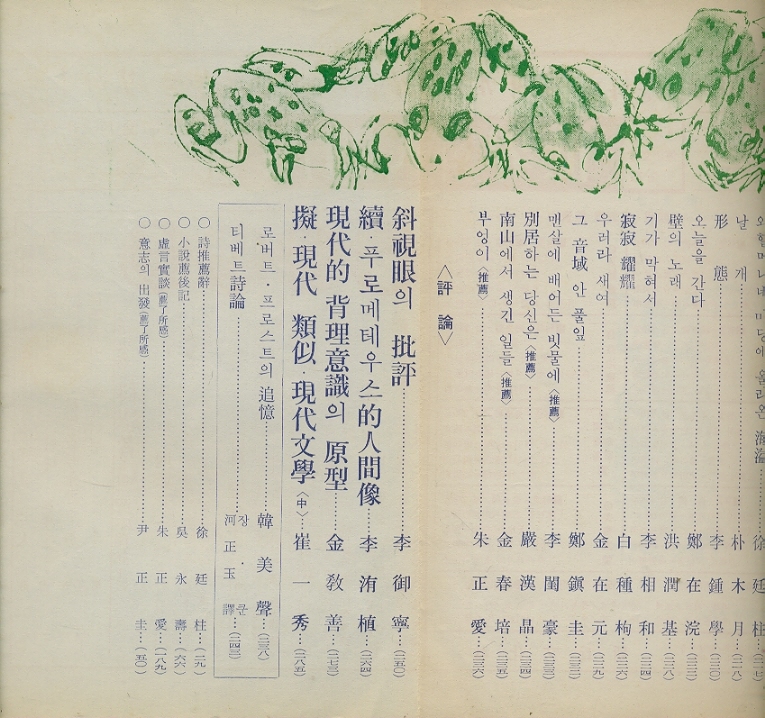 외할머니네 마당에 올라온 海溢……徐廷柱…(二一七)
날개……朴木月…(二一八)
形態……李鍾學…(二二〇)
오늘을 간다……鄭在浣…(二二二)
壁의 노래……洪潤基…(二二三)
기가 막혀서……李相和…(二二四)
寂寂 耀耀……白種枸…(二二六)
우러라 새여……金在元…(二二九)
그 音域 안 풀잎……鄭鎭圭…(二三二)
맨살에 배어든 빗물에〈推薦〉……李閏豪…(二三三)
別居하는 당신은〈推薦〉……嚴漢晶…(二三四)
南山에서 생긴 일들〈推薦〉……金春培…(二三五)
부엉이〈推薦〉……朱正愛…(二三六)
〈評論〉
斜視眼의 批評……李御寧…(二五〇)
續·푸로메테우스的人間像……李洧植…(二六四)
現代的 背理意識의 原型……金敎善…(二七三)
擬·現代 類似·現代文學〈中〉……崔一秀…(二八五)
로버트·프로스트의 追憶……韓美聲…(二三八)
티베트詩論……장·쿤 河正玉 譯…(二四三)
○ 詩推薦辭……徐廷柱…(二九)
○ 小說薦後記……吳永壽…(六六)
○ 虛言實談(薦了所感)……朱正愛…(一八九)
○ 意志의 出發(薦了所感)……尹正圭…(五〇)